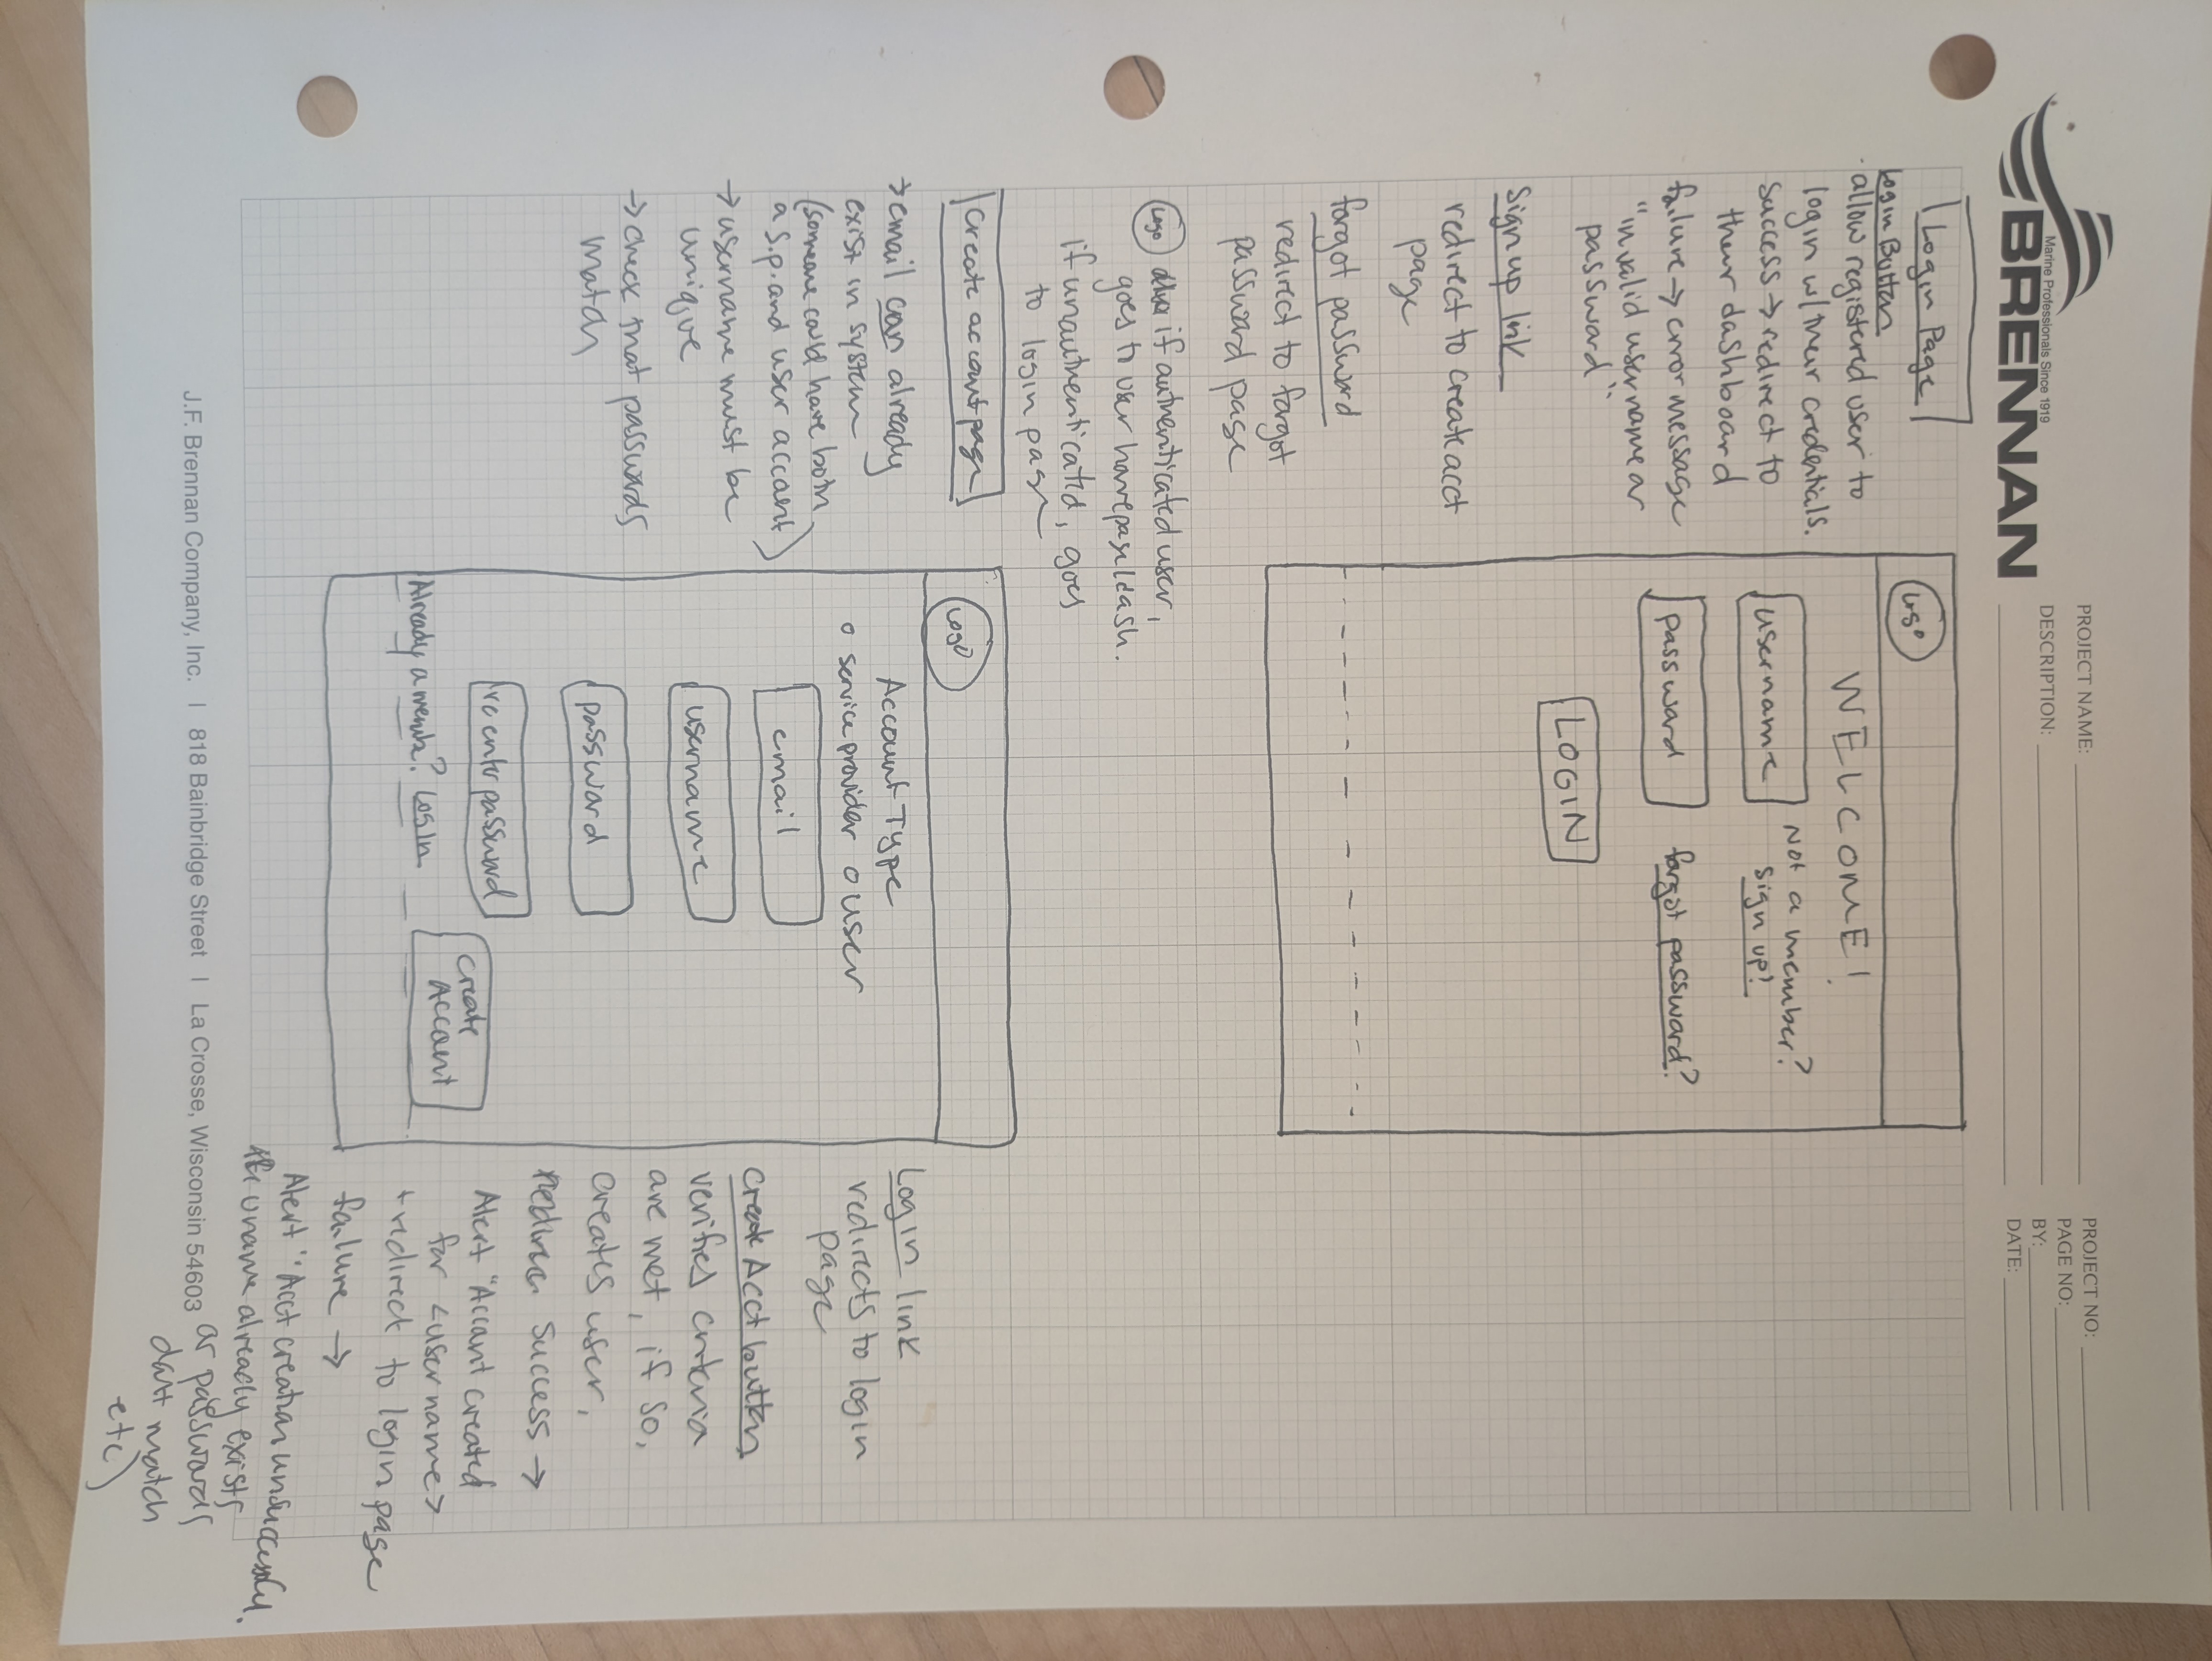 Marine Professionals Since 1919
BRENNAN
PROJECT NAME:
DESCRIPTION:
PROJECT NO:
PAGE NO:
BY:
DATE:
Login Page
Login Button
allow registered user to
login w/their credentials.
success → redirect to
their dashboard
failure → error message
"invalid username or
password"
Sign up link
redirect to create acct
page
forgot password
redirect to forgot
password page
Logo if authenticated user,
goes to user homepage/dash.
if unauthenticated, goes
to login page
Logo
WELCOME!
username
Not a member?
Sign up!
password
forgot password?
LOGIN
Create account page
→ email can already
exist in system
(someone could have both
a s.p. and user account)
→ username must be
unique
→ check that passwords
match
Logo
Account Type
o service provider o user
email
username
password
re enter password
Create
Account
Already a memb? Log In
Login link
redirects to login
page
Create Acct button
verifies criteria
are met, if so,
creates user,
success →
Alert "Account created
for <username>
+redirect to login page
failure →
Alert "Acct creation unsuccessful.
uname already exists
or passwords
don't match
etc)
J.F. Brennan Company, Inc. | 818 Bainbridge Street | La Crosse, Wisconsin 54603